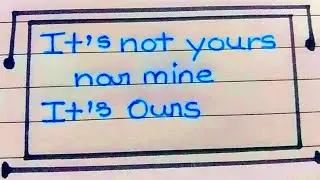 It's not yours
nor mine
It's Ours